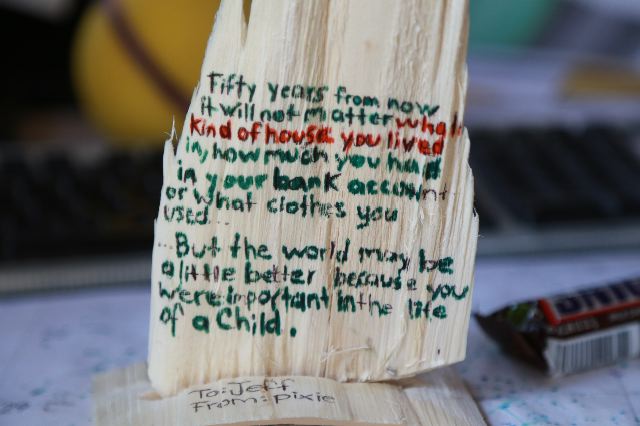 Fifty years from now
it will not matter what
kind of house you lived
in, how much you had
in your bank account
or what clothes you
used...
...But the world may be
a little better because you
were important in the life
of a Child.
To: Jeff
From: pixie